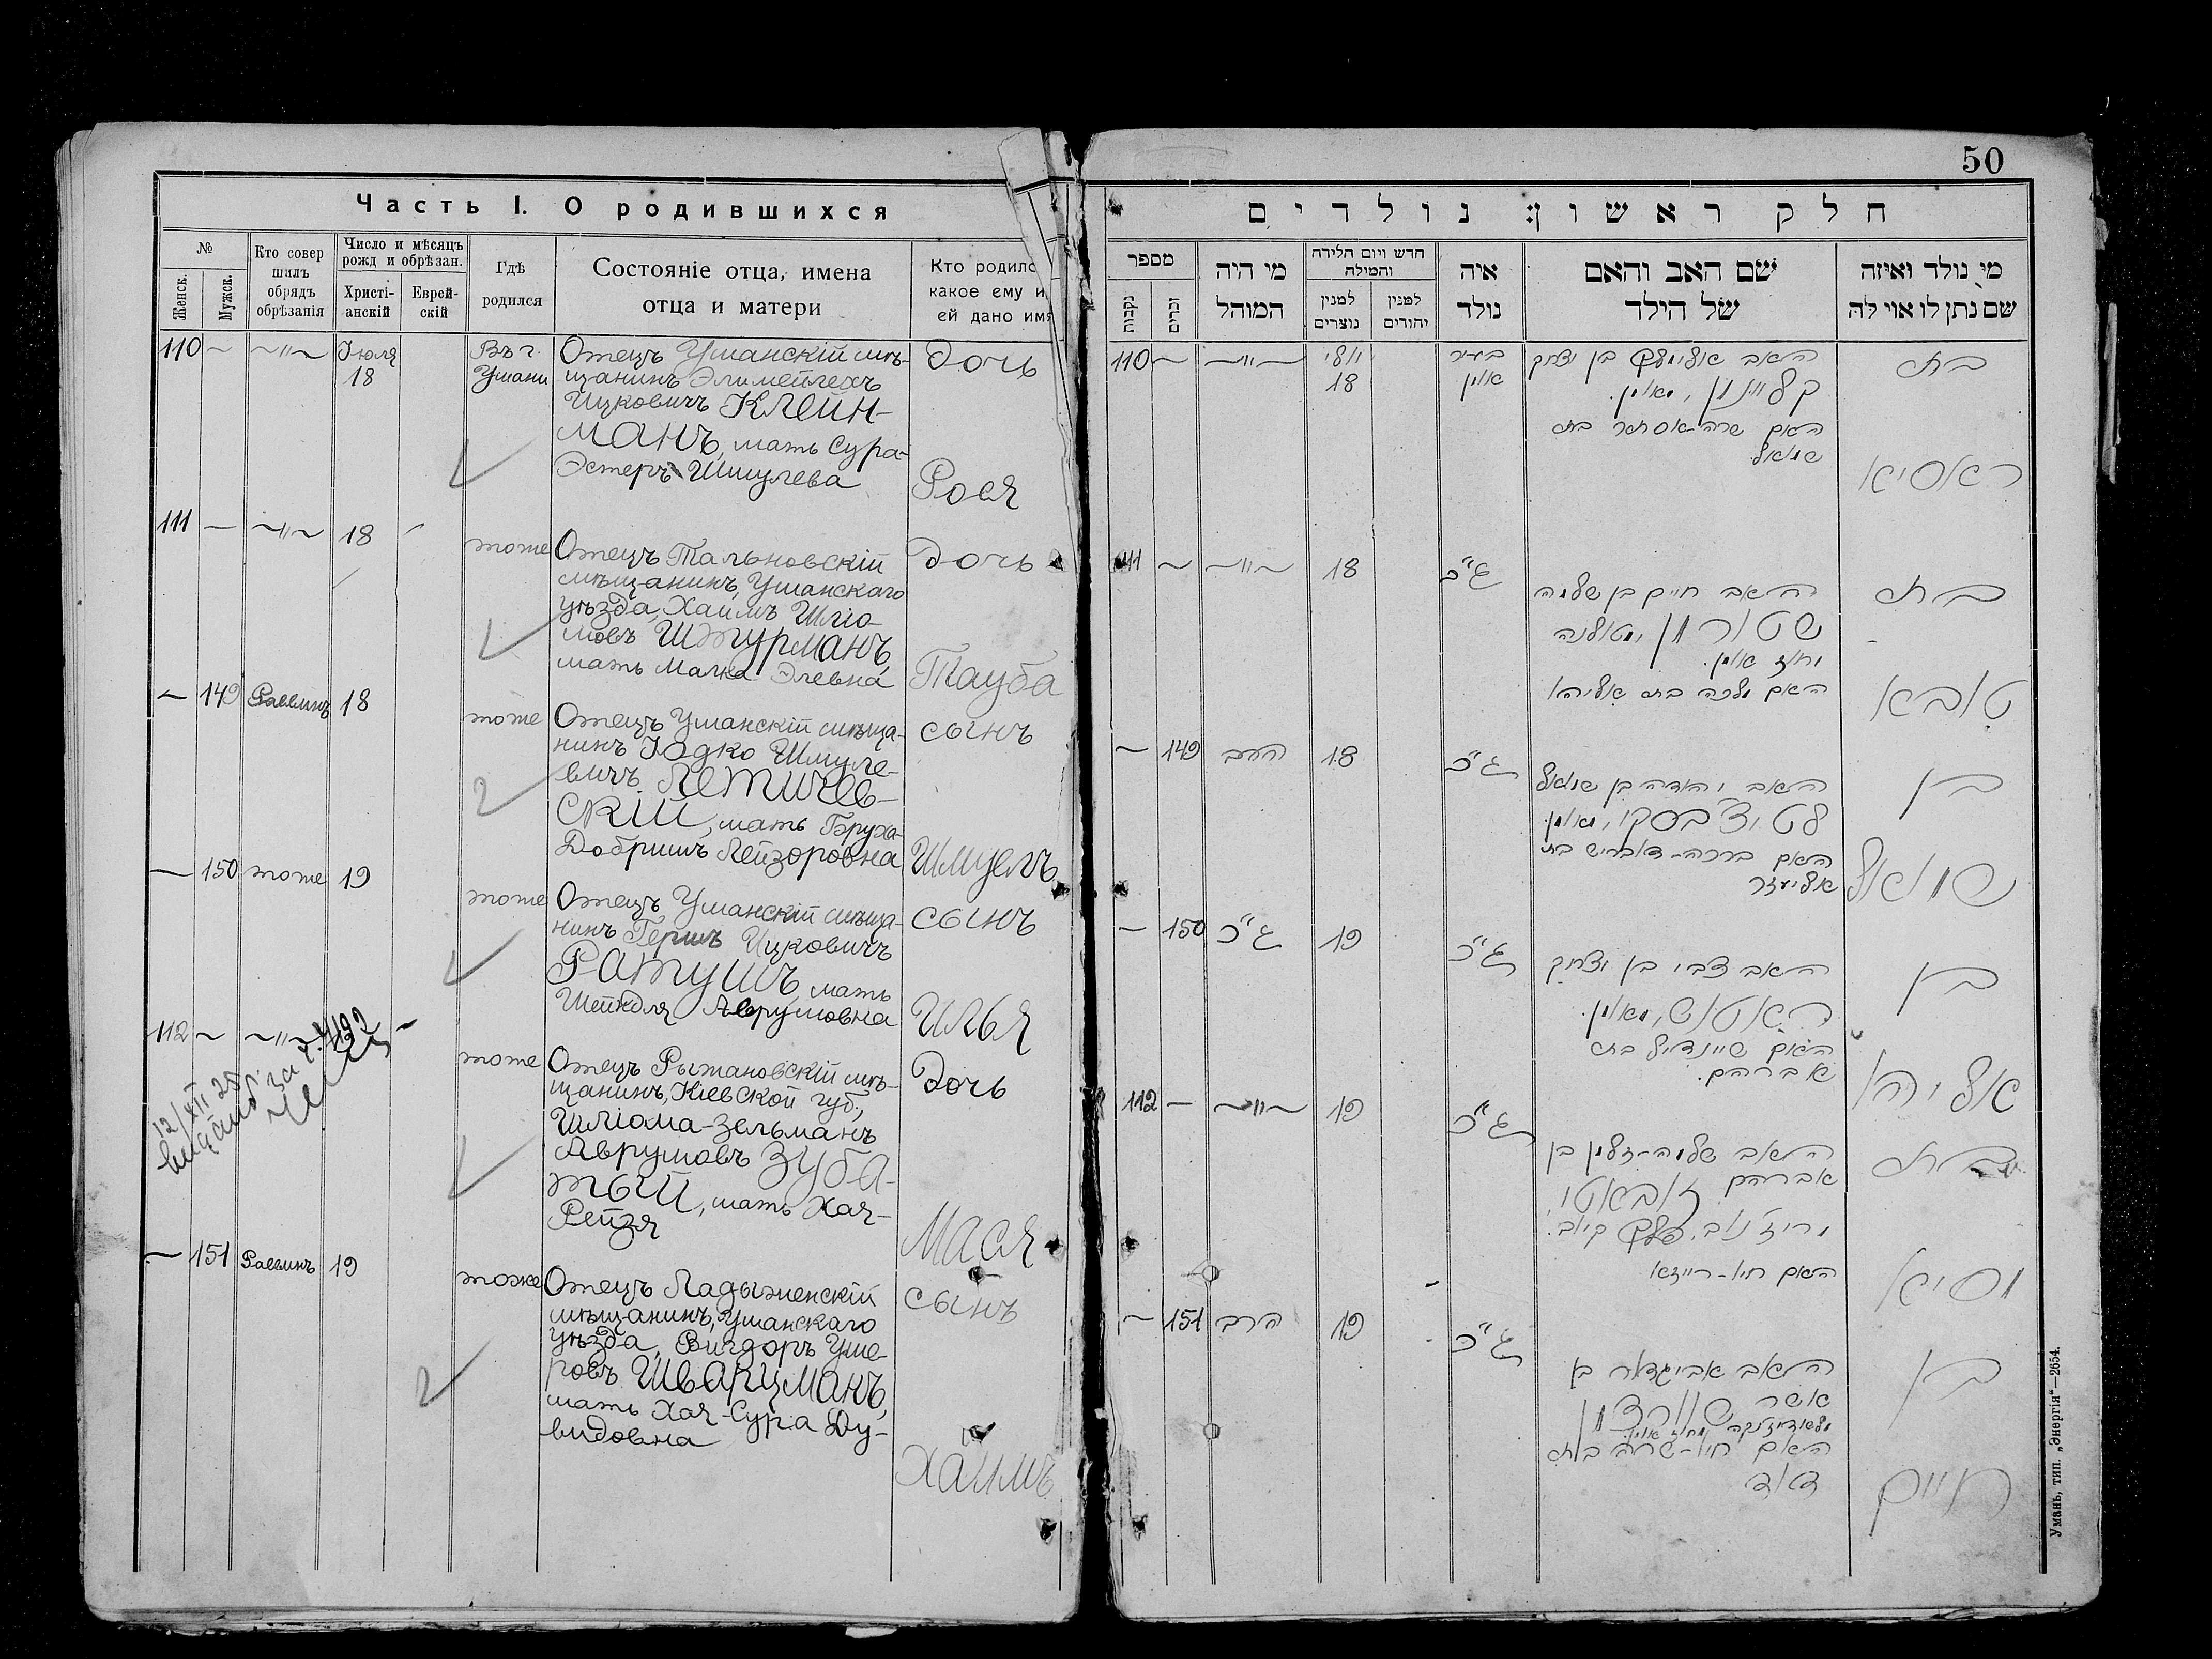 50
Часть I. О родившихся
№
Женск.
Мужск.
Кто совер
шилъ
обрядъ
обрѣзанія
Число и мѣсяцъ
рожд и обрѣзан.
Христі-
анскій
Еврей-
скій
Гдѣ
родился
Состояніе отца, имена
отца и матери
Кто родилс
какое ему и
ей дано имя
110 — —"— Іюля
18
Въ г.
Умани
Отецъ Уманскій мѣ-
щанинъ Элимейлехъ
Ицковичъ Клейн-
манъ, мать Сура-
Эстеръ Шмулева
Дочь
Рося
111 — —"— 18
тоже
Отецъ Тальновскій
мѣщанинъ, Уманскаго
уѣзда, Хаимъ Шліо-
мовъ Штурманъ,
мать Малка Элевна
Дочь
Тауба
— 149 Раввинъ 18
тоже
Отецъ Уманскій мѣща-
нинъ Іодко Шмуле-
вичъ Летичев-
скій, мать Бруха-
Добришъ Лейзоровна
сынъ
Шмуель
— 150 тоже 19
тоже
Отецъ Уманскій мѣща-
нинъ Гершъ Ицковичъ
Ратушъ, мать
Шейндля Аврумовна
сынъ
Илья
112 — —"— 19
12/XII 25
тоже
Отецъ Рыжановскій мѣ-
щанинъ, Кіевской губ.,
Шліома-Зельманъ
Аврумовъ Зуба-
тый, мать Хая-
Рейзя
Дочь
Мася
— 151 Раввинъ 19
тоже
Отецъ Ладыженскій
мѣщанинъ, Уманскаго
уѣзда, Вигдоръ Уше-
ровъ Шварцманъ,
мать Хая-Сура Ду-
видовна
сынъ
Хаимъ
חלק ראשון: נולדים
מספר
נקבה
זכר
מי היה
המוהל
חדש ויום הלידה
והמילה
למנין
נוצרים
למנין
יהודים
איה
נולד
שם האב והאם
של הילד
מי נולד ואיזה
שם נתן לו אוי לה
110 — —"— יולי
18
בעיר
אומן
האב אלימלך בן יצחק
קליינמן, מאומן.
האם שרה-אסתר בת
שמואל
בת
ראסיא
111 — —"— 18
ג"כ
האב חיים בן שלמה
שטורמן, מטאלנה
מחוז אומן.
האם מלכה בת אליהו
בת
טובא
— 149 הרב 18
ג"כ
האב יהודה בן שמואל
לטיצ'בסקי, מאומן.
האם ברכה-דאבריש בת
אליעזר
בן
שמואל
— 150 ג"כ 19
ג"כ
האב צבי בן יצחק
ראטוש, מאומן.
האם שיינדיל בת
אברהם.
בן
אליהו
112 — —"— 19
ג"כ
האב שלמה-זלמן בן
אברהם זובאטי,
מריז'נוב, פלך קיוב.
האם חיה-רייזא
בת
מסיא
— 151 הרב 19
ג"כ
האב אביגדור בן
אשר שוורצמן
מחוז אומן.
האם חיה-שרה בת
דוד
בן
חיים
Умань, тип. „Энергія“—2654.